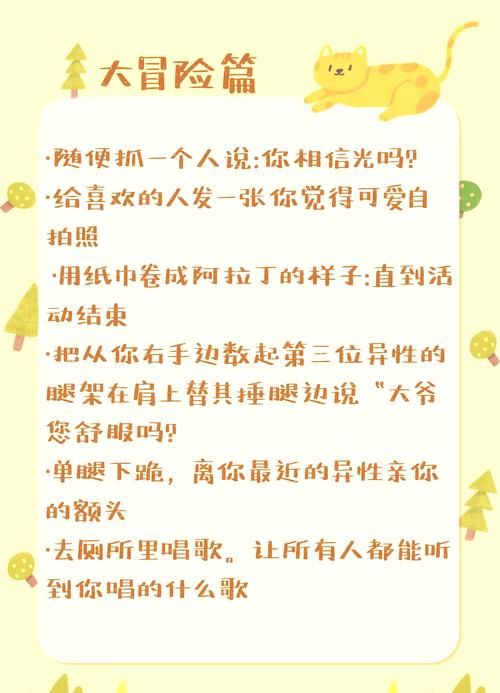 大冒险篇
·随便抓一个人说:你相信光吗?
·给喜欢的人发一张你觉得可爱自
拍照
·用纸巾卷成阿拉丁的样子:直到活
动结束
·把从你右手边数起第三位异性的
腿架在肩上替其捶腿边说“大爷
您舒服吗?
·单腿下跪，离你最近的异性亲你
的额头
·去厕所里唱歌。让所有人都能听
到你唱的什么歌